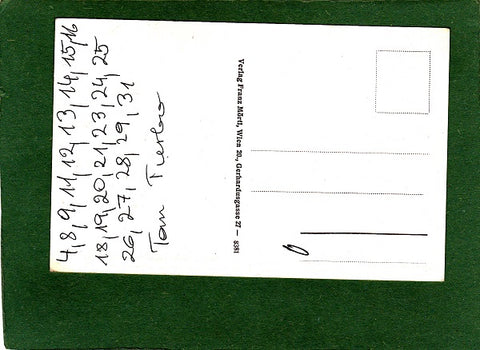 4,8,9,11,12,13,14,15,16
18,19,20,21,23,24,25
26,27,28,29,31
Tom
Verlag Franz Mörtl, Wien 20., Gerhardusgasse 27 — 8381